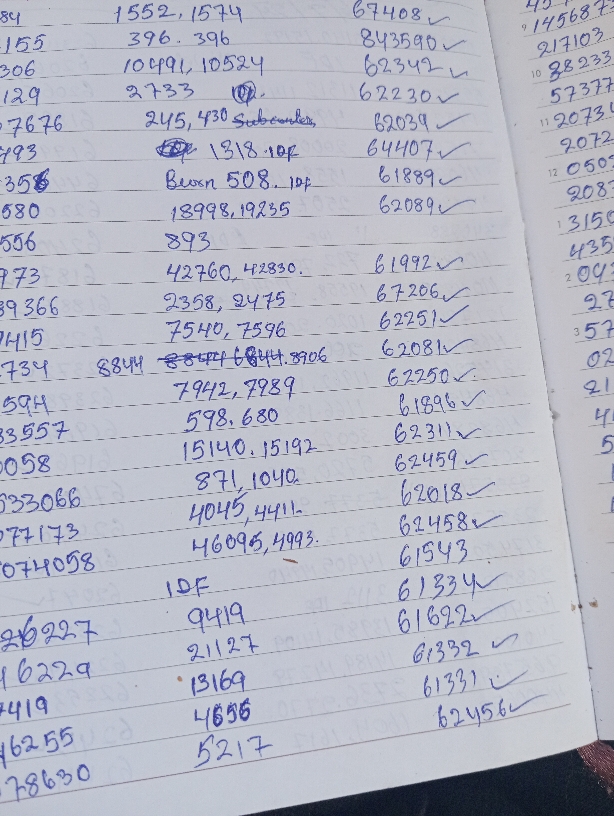 84 1552, 1574 67408 ✓
155 396. 396 843590 ✓
306 10491, 10524 62342 ✓
129 2733 62230 ✓
7676 245, 430 62039 ✓
493 1318. IDF 64407 ✓
356 508. IDF 61889 ✓
580 18998, 19235 62089 ✓
556 893
973 42760, 42830. 61992 ✓
39366 2358, 2475 67206 ✓
7415 7540, 7596 62251 ✓
734 8844 8906 62081 ✓
594 7942, 7989 62250 ✓
33557 598. 680 61896 ✓
0058 15140. 15192 62311 ✓
533066 871, 1040. 62459 ✓
077173 4045, 4411. 62018 ✓
074058 46095, 4993. 62458 ✓
IDF 61543
26227 9419 61334 ✓
46229 21127 61622 ✓
7419 13169 61332 ✓
46255 4656 61331 ✓
78630 5217 62456 ✓
9 145687
217103
10 28233
57377
11 2073
2072
12 050
208
1 3150
435
2 04
27
3 57
02
21